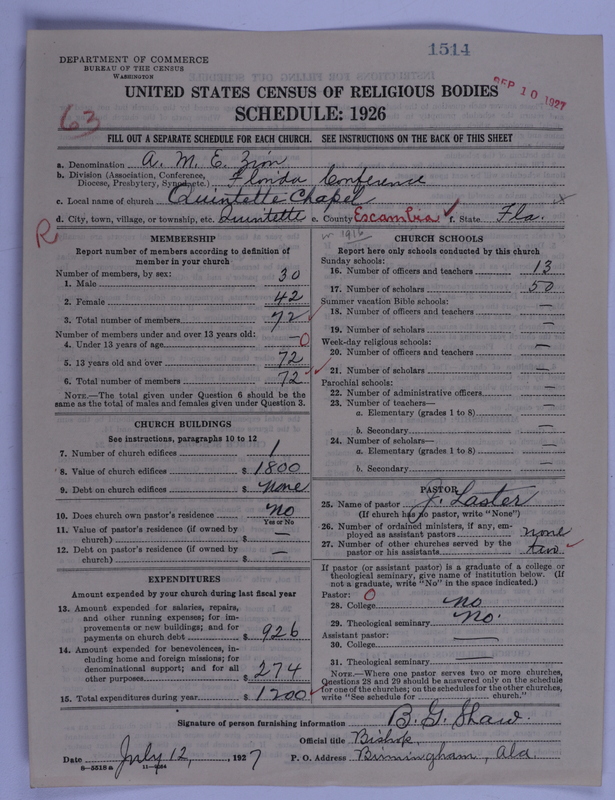 1514
DEPARTMENT OF COMMERCE
BUREAU OF THE CENSUS
WASHINGTON
SEP 10 1927
UNITED STATES CENSUS OF RELIGIOUS BODIES
SCHEDULE: 1926
63
FILL OUT A SEPARATE SCHEDULE FOR EACH CHURCH. SEE INSTRUCTIONS ON THE BACK OF THIS SHEET
a. Denomination A. M. E. Zion
b. Division (Association, Conference, Diocese, Presbytery, Synod, etc.) Florida Conference
c. Local name of church Quintette Chapel
d. City, town, village, or township, etc. Quintette e. County Escambia f. State Fla.
R
1916
MEMBERSHIP
Report number of members according to definition of
member in your church
Number of members, by sex:
1. Male 30
2. Female 42
3. Total number of members 72
Number of members under and over 13 years old:
4. Under 13 years of age — 0
5. 13 years old and over 72
6. Total number of members 72
NOTE.—The total given under Question 6 should be
same as the total of males and females given under Question 3.
CHURCH BUILDINGS
See instructions, paragraphs 10 to 12
7. Number of church edifices 1
8. Value of church edifices $ 1800
9. Debt on church edifices $ None
10. Does church own pastor's residence No
Yes or No
11. Value of pastor's residence (if owned by
church) $ —
12. Debt on pastor's residence (if owned by
church) $ —
EXPENDITURES
Amount expended by your church during last fiscal year
13. Amount expended for salaries, repairs,
and other running expenses; for im-
provements or new buildings; and for
payments on church debt $ 926
14. Amount expended for benevolences, in-
cluding home and foreign missions; for
denominational support; and for all
other purposes $ 274
15. Total expenditures during year $ 1200
CHURCH SCHOOLS
Report here only schools conducted by this church
Sunday schools:
16. Number of officers and teachers 13
17. Number of scholars 50
Summer vacation Bible schools:
18. Number of officers and teachers —
19. Number of scholars —
Week-day religious schools:
20. Number of officers and teachers —
21. Number of scholars —
Parochial schools:
22. Number of administrative officers —
23. Number of teachers—
a. Elementary (grades 1 to 8) —
b. Secondary —
24. Number of scholars—
a. Elementary (grades 1 to 8) —
b. Secondary —
PASTOR
25. Name of pastor J. Laster
(If church has no pastor, write "None")
26. Number of ordained ministers, if any, em-
ployed as assistant pastors none
27. Number of other churches served by the
pastor or his assistants two
If pastor (or assistant pastor) is a graduate of a college or
theological seminary, give name of institution below. (If
not a graduate, write "No" in the space indicated.)
Pastor: 0
28. College no
29. Theological seminary No.
Assistant pastor:
30. College —
31. Theological seminary —
NOTE.—Where one pastor serves two or more churches,
Questions 28 and 29 should be answered only on the schedule
for one of the churches; on the schedules for the other churches,
write "See schedule for church."
Signature of person furnishing information B. G. Shaw.
Official title Bishop
Date July 12, 1927 P. O. Address Birmingham, Ala.